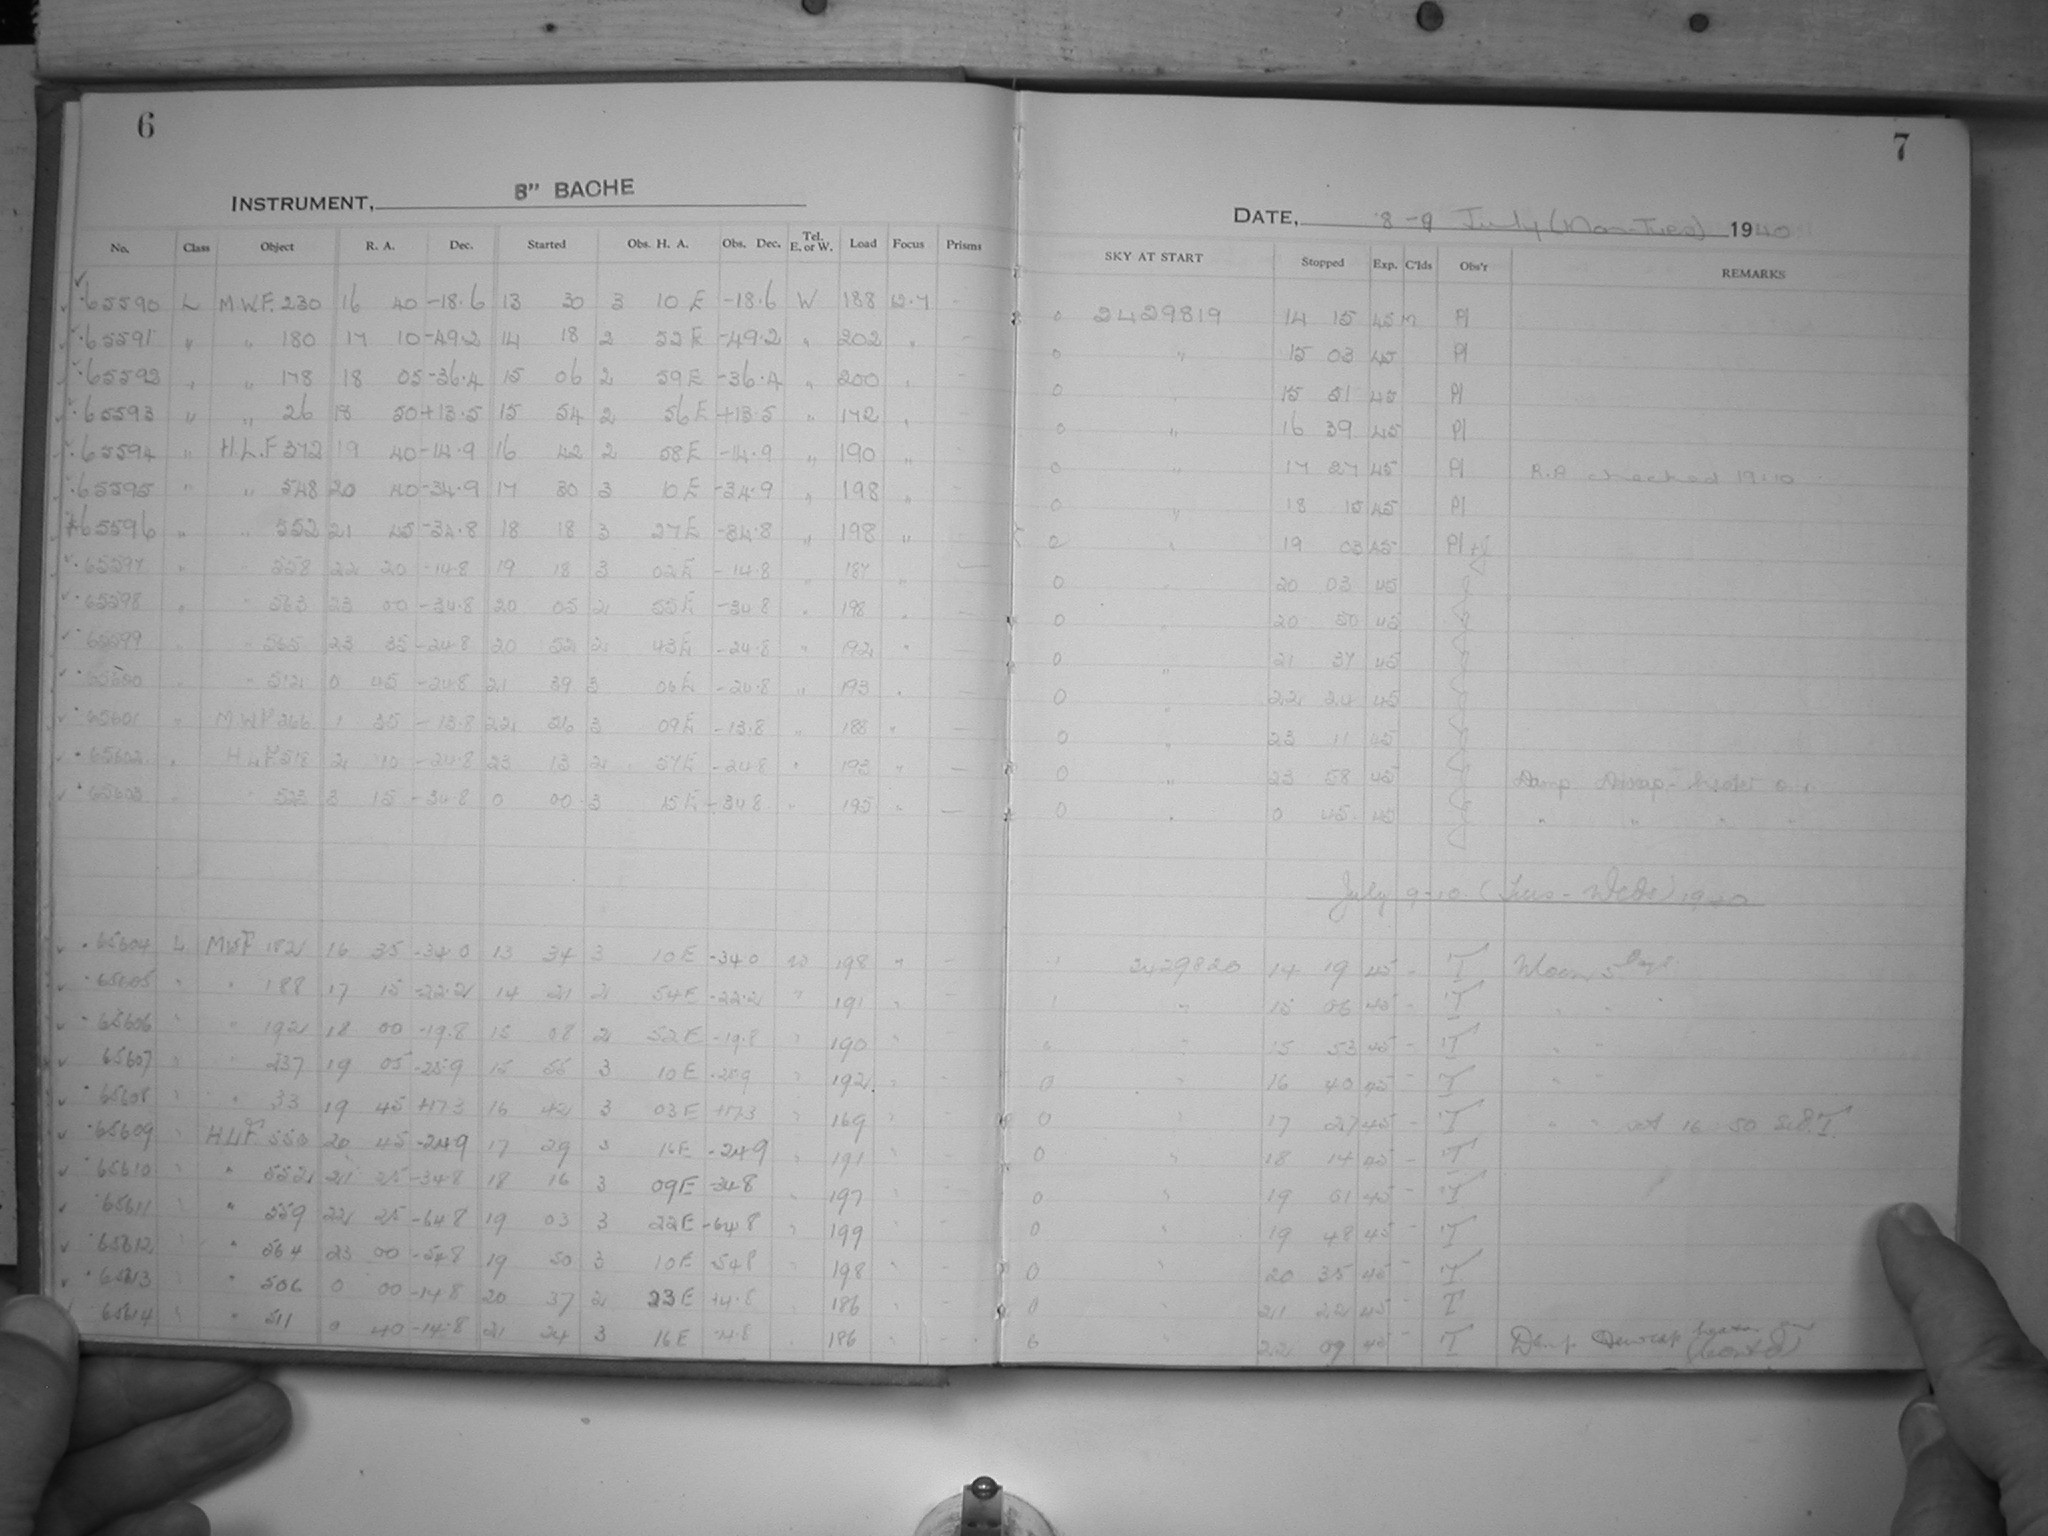 6
INSTRUMENT, 8" BACHE
No. Class Object R. A. Dec. Started Obs. H. A. Obs. Dec. Tel. E. or W. Load Focus Prisms
65590 L M.W.F. 230 16 40 -18.6 13 30 3 10 E -18.6 W 188 12.7 -
65591 " " 180 17 10 -49.2 14 18 2 52 E -49.2 " 202 " -
65592 " " 178 18 05 -36.4 15 06 2 59 E -36.4 " 200 " -
65593 " " 26 18 50 +13.5 15 54 2 56 E +13.5 " 172 " -
65594 " H.L.F 372 19 40 -14.9 16 42 2 58 E -14.9 " 190 " -
65595 " " 548 20 40 -34.9 17 30 3 10 E -34.9 " 198 " -
65596 " " 552 21 45 -34.8 18 18 3 27 E -34.8 " 198 " -
65597 " " 558 22 20 -14.8 19 18 3 02 E -14.8 " 187 " -
65598 " " 563 23 00 -34.8 20 05 2 55 E -34.8 " 198 " -
65599 " " 565 23 35 -24.8 20 52 2 43 E -24.8 " 192 " -
65600 " " 512 0 45 -24.8 21 39 3 06 E -24.8 " 193 " -
65601 " M.W.F 266 1 35 -13.8 22 26 3 09 E -13.8 " 188 " -
65602 " H.L.F 518 2 10 -24.8 23 13 2 57 E -24.8 " 193 " -
65603 " " 523 3 15 -34.8 0 00 3 15 E -34.8 " 195 " -
65604 L MWF 182 16 35 -34.0 13 34 3 10 E -34.0 W 198 " -
65605 " " 188 17 15 -22.2 14 21 2 54 E -22.2 " 191 " -
65606 " " 192 18 00 -19.8 15 08 2 52 E -19.8 " 190 " -
65607 " " 237 19 05 -25.9 15 55 3 10 E -25.9 " 192 " -
65608 " " 33 19 45 +17.3 16 42 3 03 E +17.3 " 169 " -
65609 " HLF 550 20 45 -24.9 17 29 3 16 E -24.9 " 191 " -
65610 " " 552 21 25 -34.8 18 16 3 09 E -34.8 " 197 " -
65611 " " 559 22 25 -64.8 19 03 3 22 E -64.8 " 199 " -
65612 " " 564 23 00 -54.8 19 50 3 10 E -54.8 " 198 " -
65613 " " 506 0 00 -14.8 20 37 2 23 E -14.8 " 186 " -
65614 " " 511 0 40 -14.8 21 24 3 16 E -14.8 " 186 " -
7
DATE, 8-9 July (Mon-Tues) 1940
SKY AT START Stopped Exp. C'lds Obs'r REMARKS
0 2429819 14 15 45 m Pl
0 " 15 03 45 Pl
0 " 15 51 45 Pl
0 " 16 39 45 Pl
0 " 17 27 45 Pl R.A checked 19:10
0 " 18 15 45 Pl
0 " 19 03 45 Pl
0 20 03 45
0 " 20 50 45
0 " 21 37 45
0 " 22 24 45
0 " 23 11 45
0 " 23 58 45 Damp Dewcap heater on
0 " 0 45 45 " " " "
July 9-10 (Tues - Weds) 1940
1 2429820 14 19 45 - T Moon 5 Days
1 " 15 06 45 - T " "
" " 15 53 45 - T " "
0 " 16 40 45 - T " "
0 " 17 27 45 - T " " set 16 50 S.D.T.
0 " 18 14 45 - T
0 " 19 01 45 - T
0 " 19 48 45 - T
0 " 20 35 45 - T
0 " 21 22 45 - T
0 " 22 09 45 - T Damp Dewcap heater on (Cont'd)